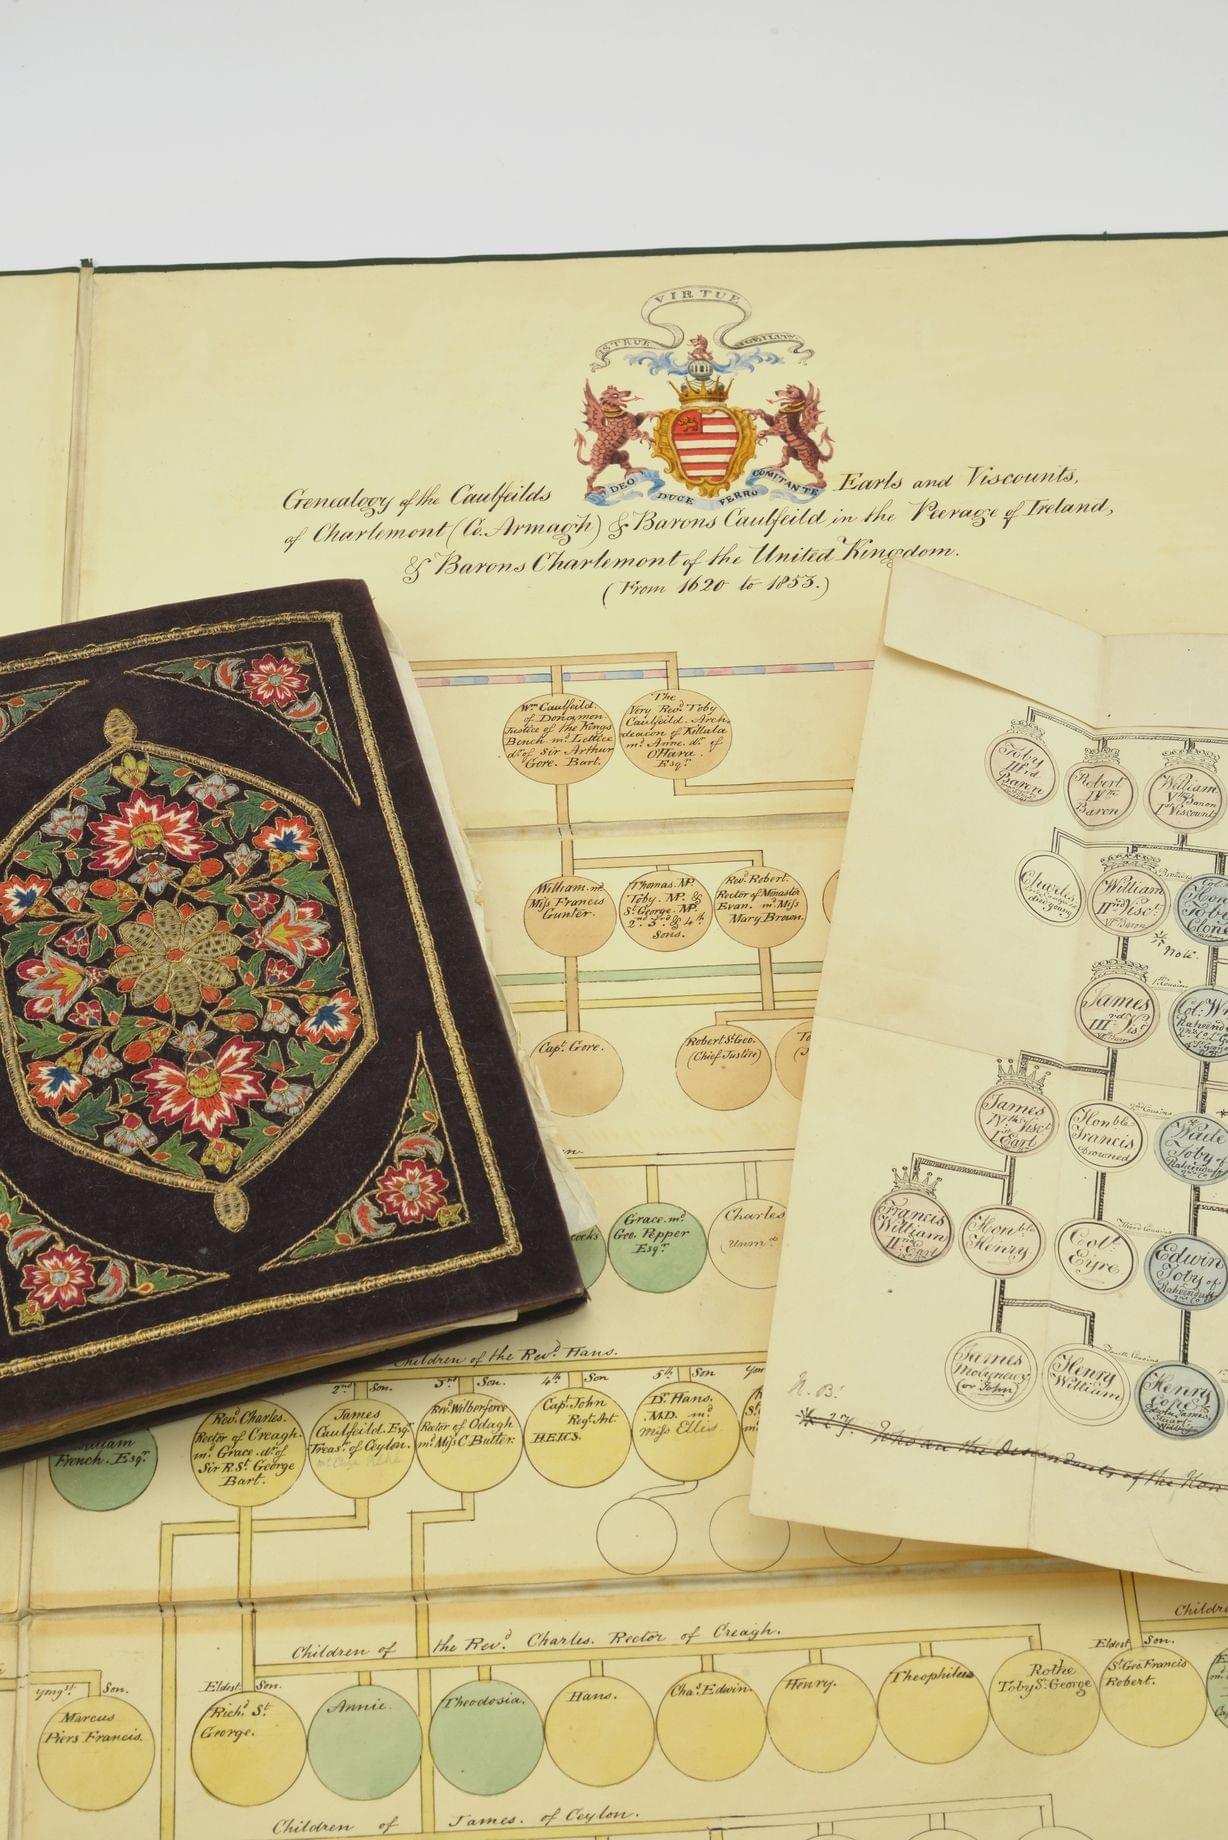 VIRTUE
IS TRUE NOBILITY
DEO DUCE FERRO COMITANTE
Genealogy of the Caulfeilds Earls and Viscounts,
of Charlemont (Co. Armagh) & Barons Caulfeild in the Peerage of Ireland,
& Barons Charlemont of the United Kingdom.
(From 1620 to 1853.)
Wm Caulfeild.
of Donamon
Justice of the Kings
Bench md Lettice
dr of Sir Arthur
Gore. Bart.
The
Very Revd Toby
Caulfeild. Arch-
deacon of Killala
md Anne. dr of
O'Hara.
Esqr
William md
Miss Francis
Gunter.
Thomas. MP.
Toby. MP. &
St George. MP.
2nd 3rd & 4th
Sons.
Revd Robert.
Rector of Monaster
Evan. md Miss
Mary Brown.
Capt Gore.
Robert St Geo.
(Chief Justice)
To
Grace. md
Geo. Pepper
Esqr
Charles
(Unmd
Children of the Revd Hans.
2nd Son.
3rd Son.
4th Son.
5th Son.
William
French. Esqr
Revd Charles.
Rector of Creagh.
md Grace. dr of
Sir R. St George
Bart.
James
Caulfeild. Esqr
Treasr of Ceylon.
Revd Wilberforce
Rector of Odagh
md Miss C Butler.
Capt John
Regt Art.
HEICS.
Dr Hans.
MD. md
miss Ellis
Children of the Revd Charles. Rector of Creagh.
yongst Son.
Marcus
Piers Francis.
Eldest Son.
Richd St
George.
Annie.
Theodosia.
Hans.
Chas Edwin.
Henry.
Theophilus
Rothe
Toby St George
Eldest Son.
St Geo. Francis
Robert.
Children of James. of Ceylon.
Toby
IIIrd
Baron
Robert
IVth
Baron
William
Vth Baron
Ist Viscount
Charles
died young
William
IInd Visct
VI Baron
Toby
Clone
Note.
James
IIIrd Vist
Coll Wm
1st Cousins
James
IVth Visct
Ist Earl
Honble
Francis
Drowned
Wade
Toby of
Francis
William
II Earl
Honble
Henry
Coll
Eyre
Third Cousins
Edwin
Toby of
James
Molyneux
(or John)
Henry
William
Fourth Cousins
Henry
N. B.
Who are the Descendants of the Hon